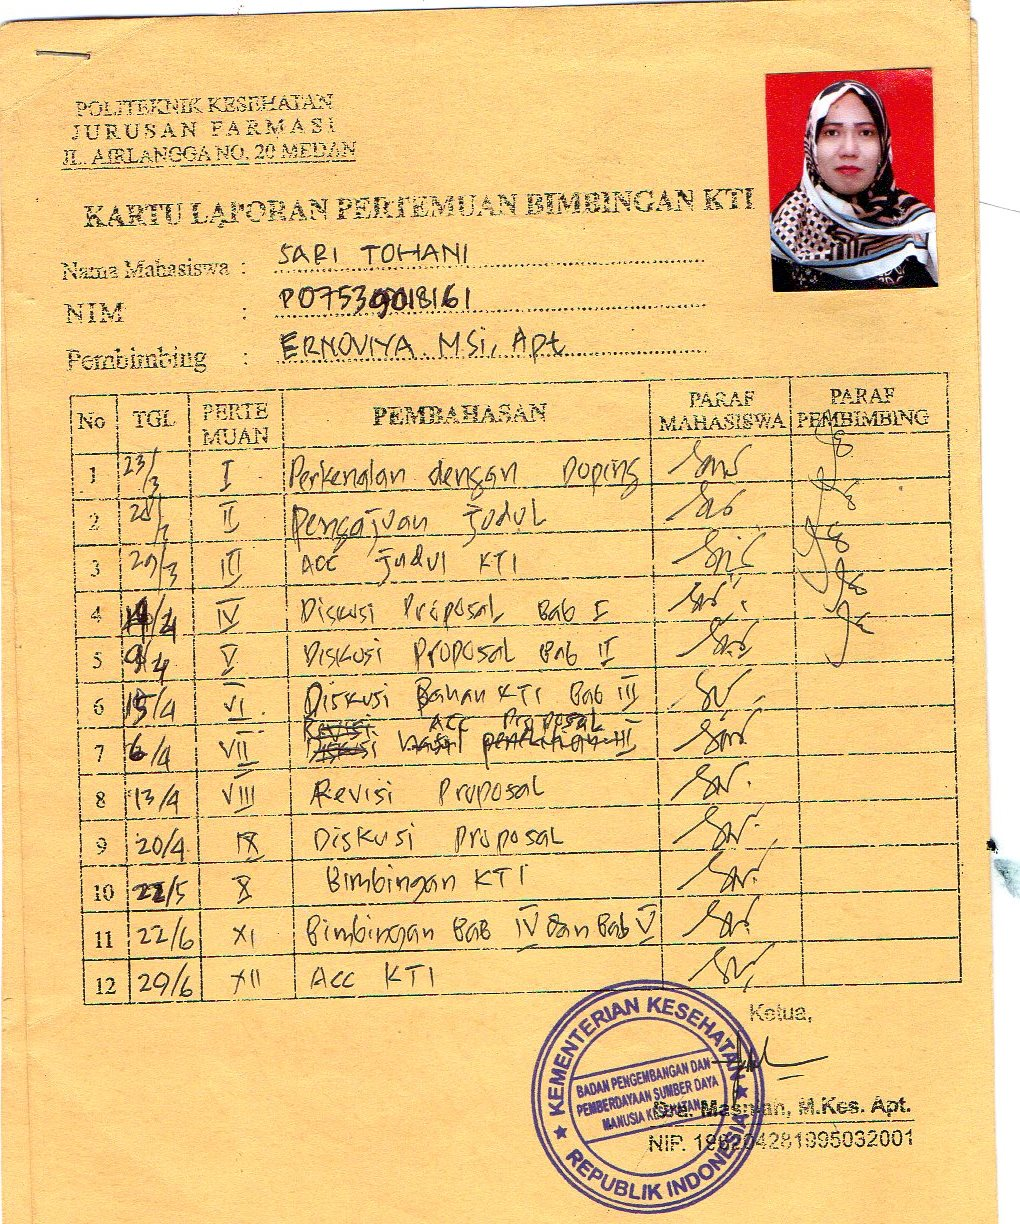 POLITEKNIK KESEHATAN
JURUSAN FARMASI
JL. AIRLANGGA NO. 20 MEDAN
KARTU LAPORAN PERTEMUAN BIMBINGAN KTI
Nama Mahasiswa : SARI TOHANI
NIM : P07539018161
Pembimbing : ERNOVIYA MSi, Apt
No TGL PERTE MUAN PEMBAHASAN PARAF MAHASISWA PARAF PEMBIMBING
1 23/3 I Perkenalan dengan Doping
2 II Pengajuan judul
3 29/3 III Acc judul KTI
4 IV Diskusi Proposal Bab I
5 9/4 V Diskusi Proposal Bab II
6 15/4 VI Diskusi Bahan KTI Bab III
7 6/4 VII Acc Proposal
8 13/4 VIII Revisi Proposal
9 20/4 IX Diskusi Proposal
10 22/5 X Bimbingan KTI
11 22/6 XI Bimbingan Bab IV dan Bab V
12 29/6 XII Acc KTI
Ketua,
KEMENTERIAN KESEHATAN
BADAN PENGEMBANGAN DAN
PEMBERDAYAAN SUMBER DAYA
MANUSIA KESEHATAN
REPUBLIK INDONESIA
Dra. Masniah, M.Kes. Apt.
NIP. 196204281995032001